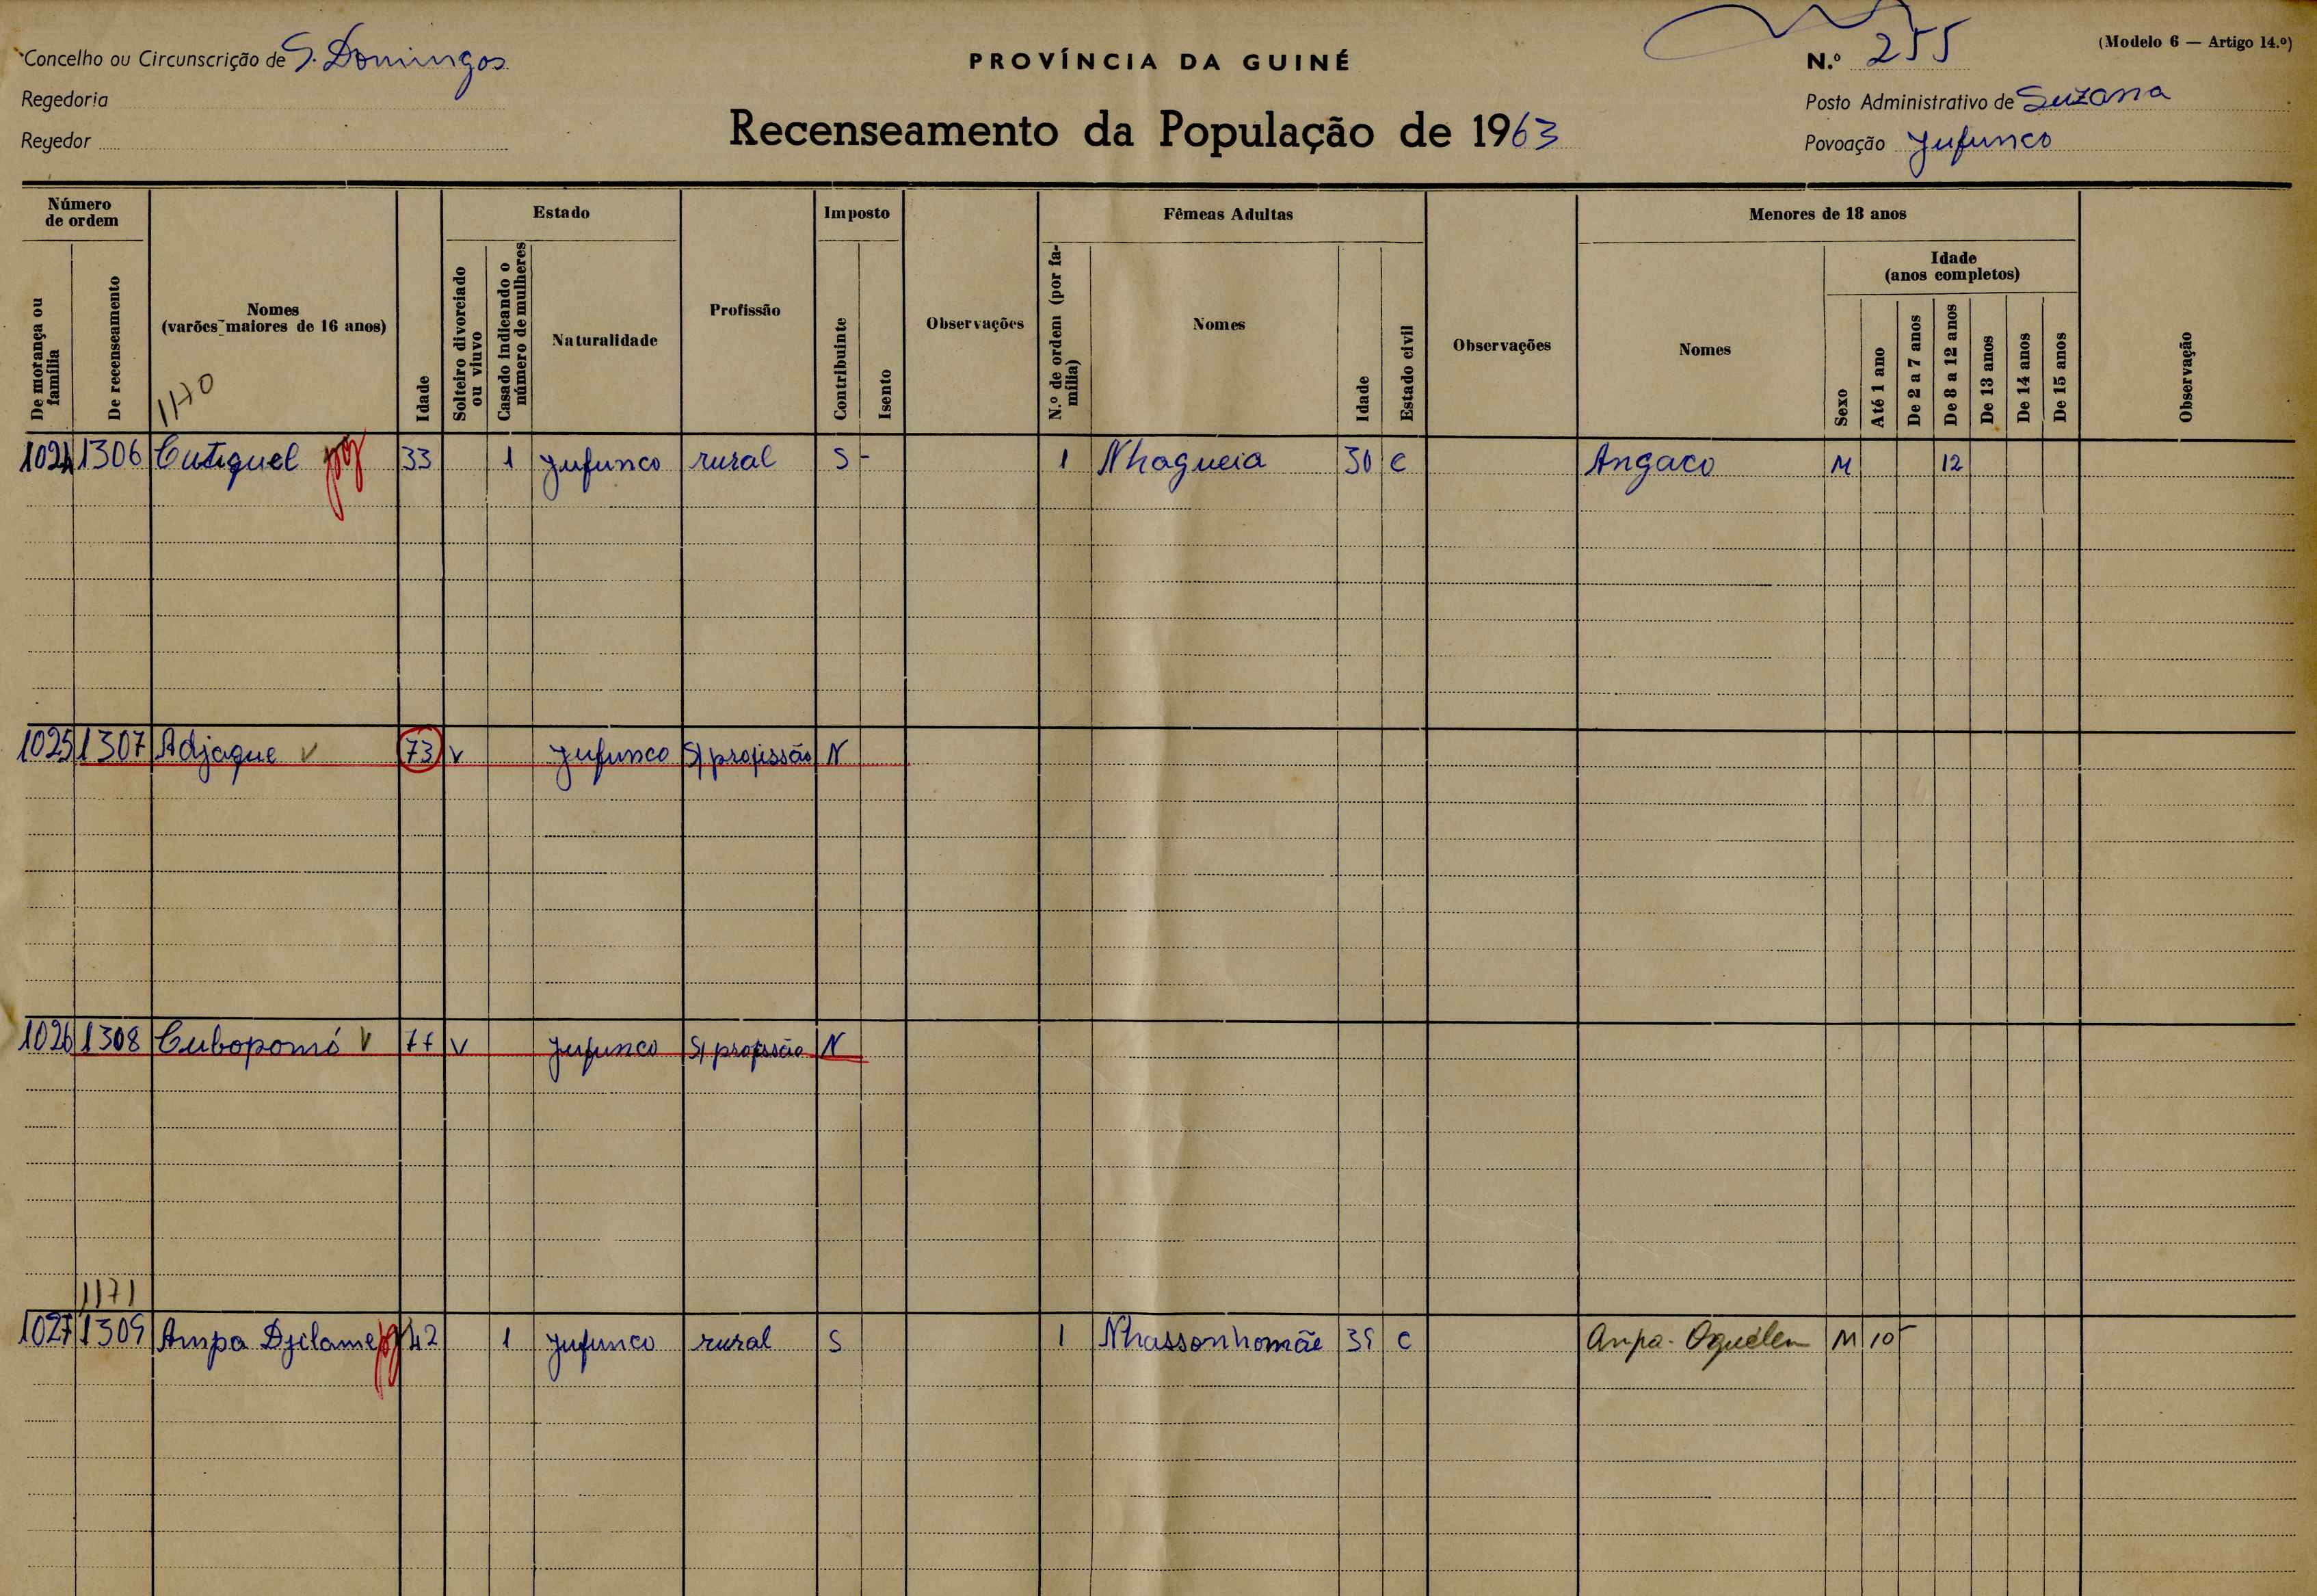 Concelho ou Circunscrição de S. Domingos
Regedoria
Regedor
PROVÍNCIA DA GUINÉ
Recenseamento da População de 1963
(Modelo 6 — Artigo 14.º)
N.º 255
Posto Administrativo de Suzana
Povoação Jufunco
Número de ordem
De morança ou família
De recenseamento
Nomes
(varões maiores de 16 anos)
1170
Idade
Estado
Solteiro divorciado ou viuvo
Casado indicando o número de mulheres
Naturalidade
Profissão
Imposto
Contribuinte
Isento
Observações
Fêmeas Adultas
N.º de ordem (por família)
Nomes
Idade
Estado civil
Observações
Menores de 18 anos
Nomes
Sexo
Idade
(anos completos)
Até 1 ano
De 2 a 7 anos
De 8 a 12 anos
De 13 anos
De 14 anos
De 15 anos
Observação
1024 1306 Cutiquel 33 1 Jufunco rural S - 1 Nhagueia 30 C Angaco M 12
1025 1307 Adjaque V 73 V Jufunco S/ profissão N
1026 1308 Cubopomó V 77 V Jufunco S/ profissão N
1171
1027 1309 Ampa Djilame 42 1 Jufunco rural S 1 Nhassonhomãe 35 C Anpa-Oquélem M 10